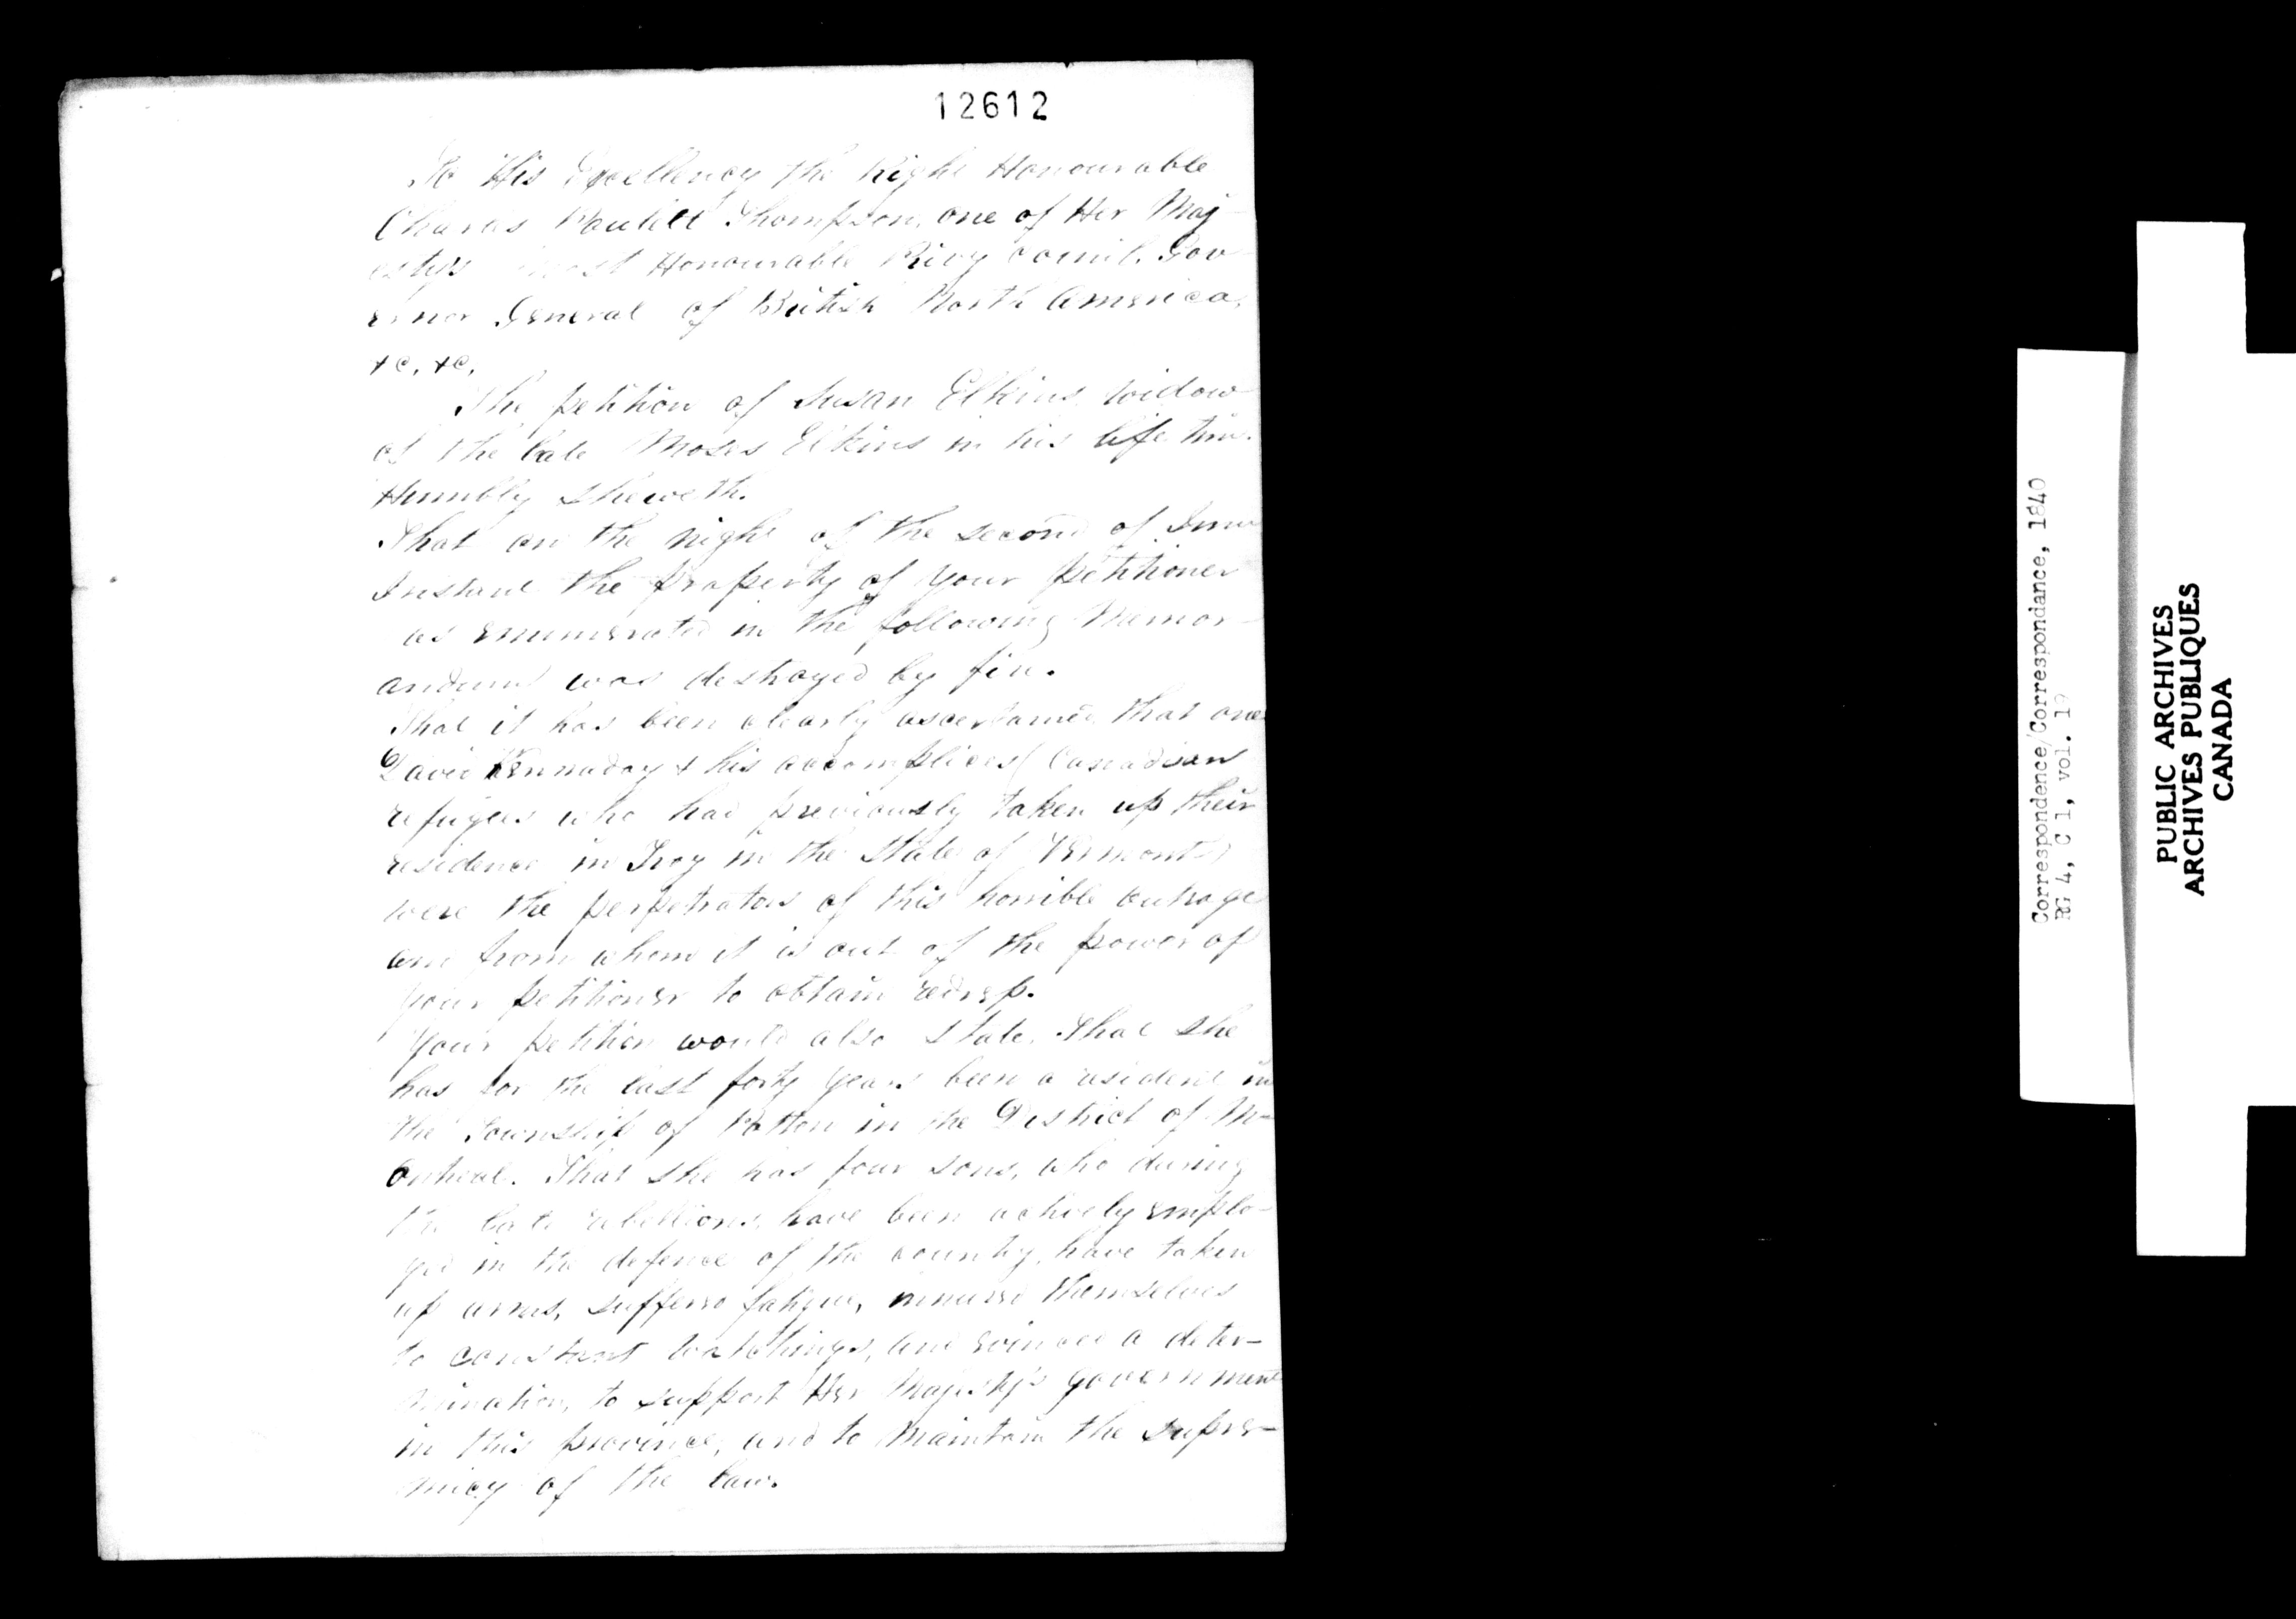 12612
To His Excellency the Right Honourable
Charles Poulett Thompson, one of Her Maj-
estys most Honourable Privy Council. Gov-
ernor General of British North America,
&c, &c,
The petition of Susan Elkins, widow
of the late Moses Elkins in his life time
Humbly sheweth.
That on the night of the second of June
Instant the property of your petitioner
as enumerated in the following Memor-
andum was destroyed by fire.
That it has been clearly ascertained that one
David Kennaday & his accomplices (Canadian
refugees who had previously taken up their
residence in Troy in the State of Vermont)
were the perpetrators of this horrible outrage
and from whom it is out of the power of
your petitioner to obtain redress.
Your petition would also state. That she
has for the last forty years been a resident in
the Township of Potton in the District of M-
ontreal. That she has four sons, who during
the late rebellions, have been actively emplo-
yed in the defence of the country, have taken
up arms, suffered fatigue, innured themselves
to constant watchings, and evinced a deter-
mination, to support Her Majesty's government
in this province, and to Maintain the supre-
micy of the law.
Correspondence/Correspondance, 1840
RG 4, C 1, vol. 19
PUBLIC ARCHIVES
ARCHIVES PUBLIQUES
CANADA